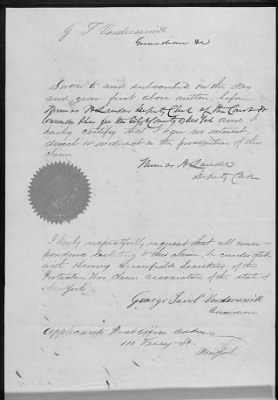 G F Vanderveith
Guardian &c
Sworn to and subscribed on the day
and year first above written before
H Lander Deputy Clerk of the Court of
Common Pleas for the City & County of New York and I
hereby certify that I have no interest
direct or indirect in the prosecution of this
claim
H Lander
Deputy Clerk
I hereby respectfully request that all corres-
pondence relating to this claim be conducted
with Henry Secretary of the
Protective War Claim association of the State of
New York
George
Guardian
Applicants Post Office Address
111 Vesey St.
New York